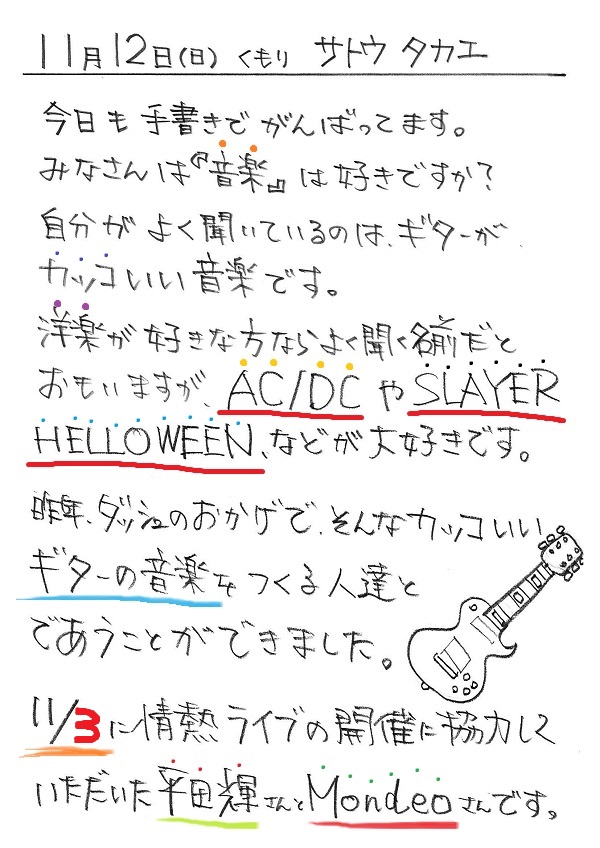 11月12日(日) くもり サトウ タカエ
今日も手書きでがんばってます。
みなさんは『音楽』は好きですか?
自分がよく聞いているのは、ギターが
カッコいい音楽です。
洋楽が好きな方ならよく聞く名前だと
おもいますが、AC/DCやSLAYER
HELLOWEEN、などが大好きです。
昨年、ダッシュのおかげで、そんなカッコいい
ギターの音楽をつくる人達と
であうことができました。
11/3に情熱ライブの開催に協力して
いただいた平田輝さんとMondeoさんです。